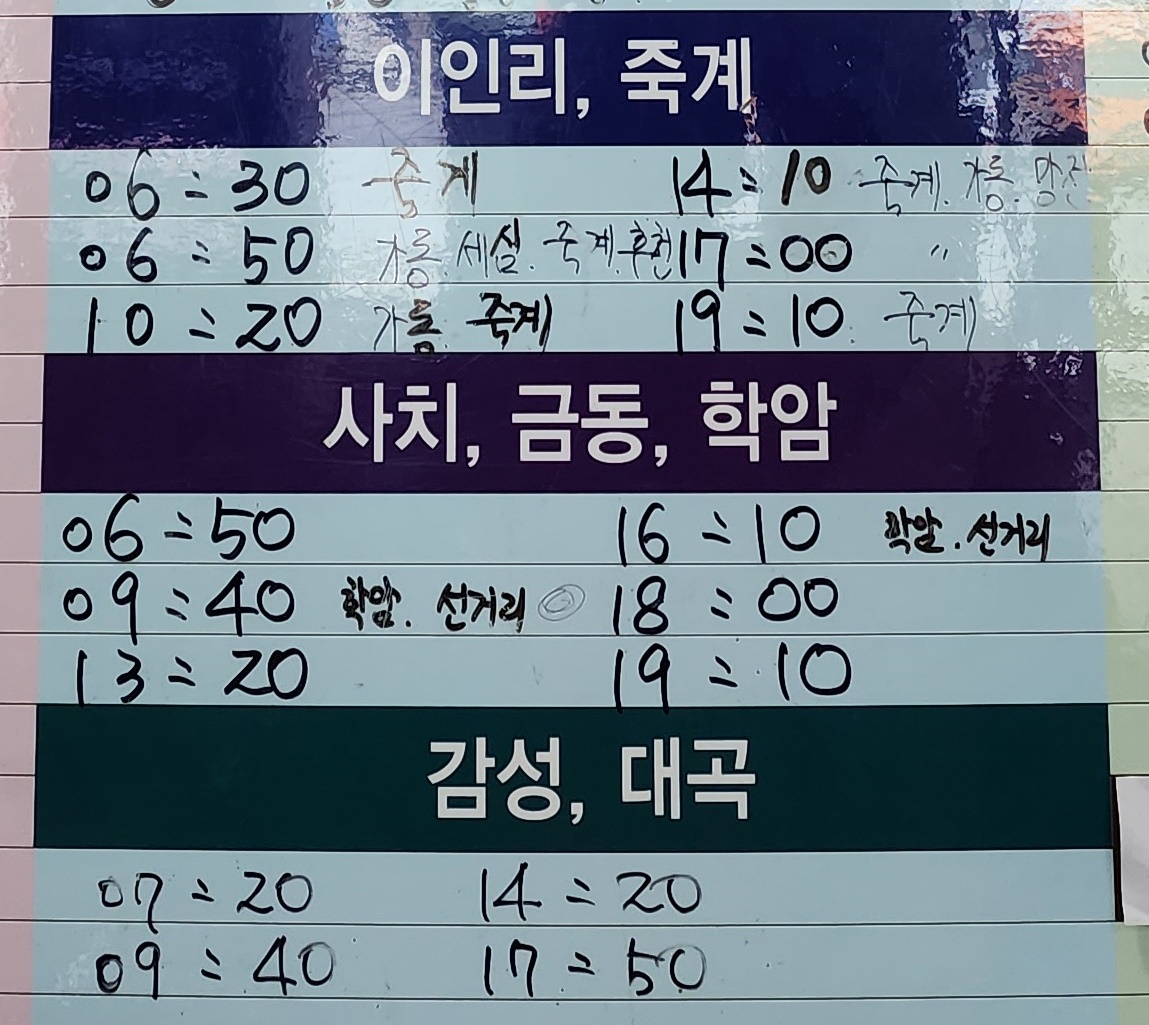 이인리, 죽계
06:30 죽계 14:10 죽계. 가릉. 망진
06:50 가릉 세실. 죽계. 후천 17:00 〃
10:20 가릉 죽계 19:10 죽계
사치, 금동, 학암
06:50 16:10 학암. 선거리
09:40 학암. 선거리 18:00
13:20 19:10
감성, 대곡
07:20 14:20
09:40 17:50